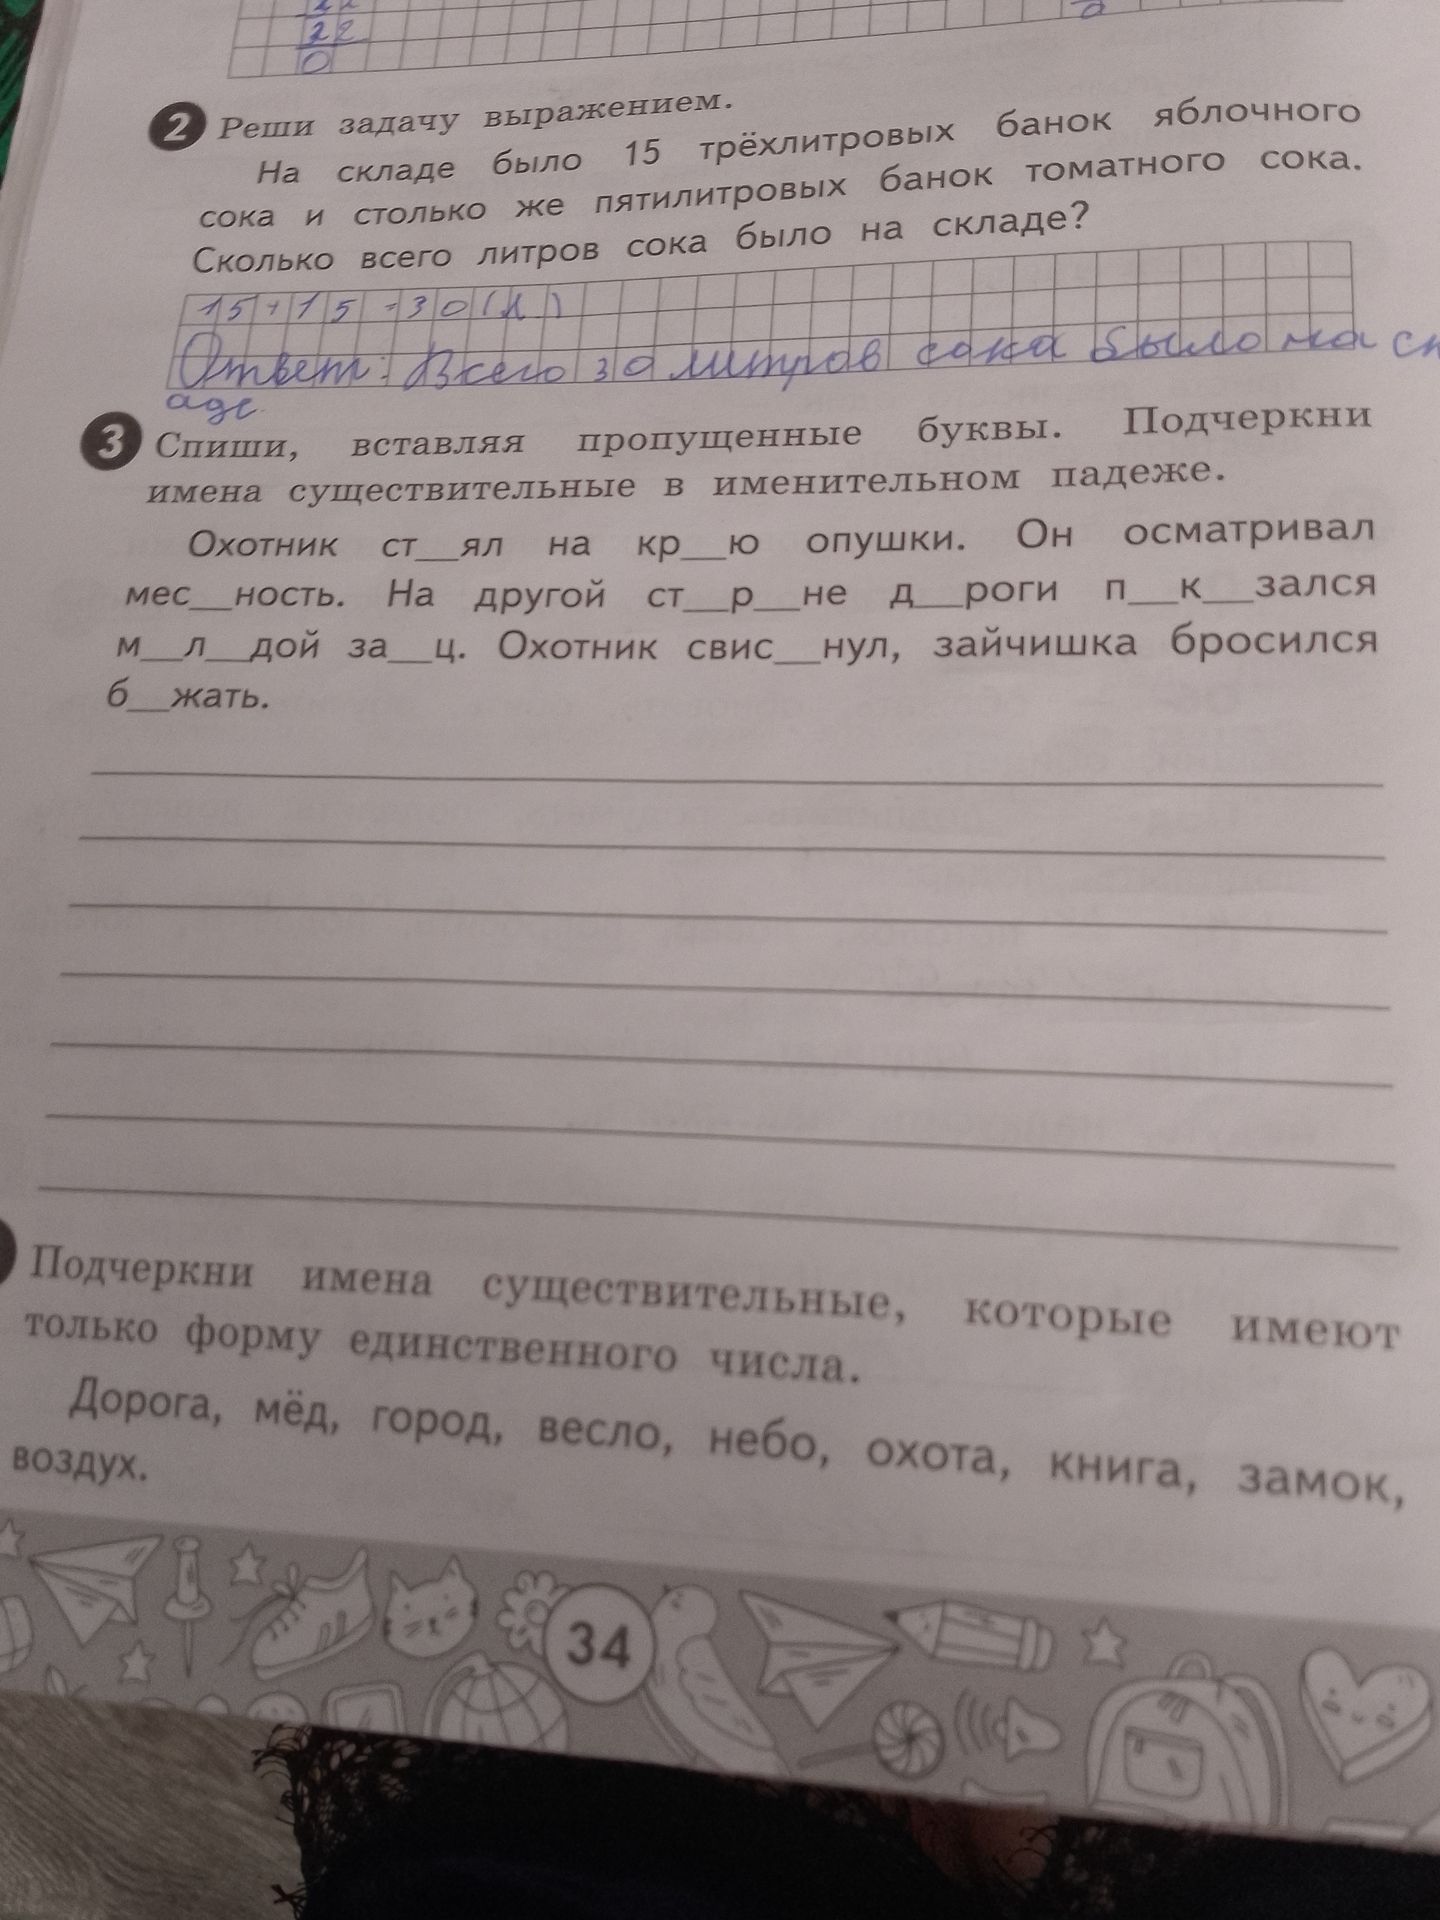 22
0
2 Реши задачу выражением.
На складе было 15 трёхлитровых банок яблочного
сока и столько же пятилитровых банок томатного сока.
Сколько всего литров сока было на складе?
15+15=30(л)
Ответ: Всего 30 литров сока было на ск
аде
3 Спиши, вставляя пропущенные буквы. Подчеркни
имена существительные в именительном падеже.
Охотник ст__ял на кр__ю опушки. Он осматривал
мес__ность. На другой ст__р__не д__роги п__к__зался
м__л__дой за__ц. Охотник свис__нул, зайчишка бросился
б__жать.
Подчеркни имена существительные, которые имеют
только форму единственного числа.
Дорога, мёд, город, весло, небо, охота, книга, замок,
воздух.
34